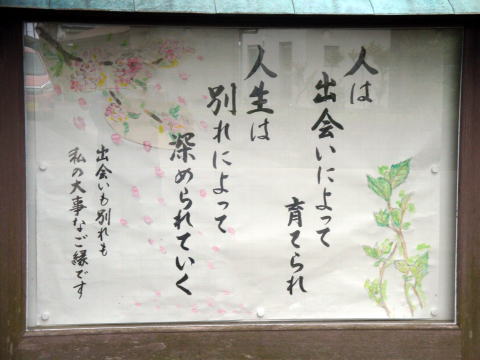 人は
出会いによって
育てられ
人生は
別れによって
深められていく
出会いも別れも
私の大事なご縁です